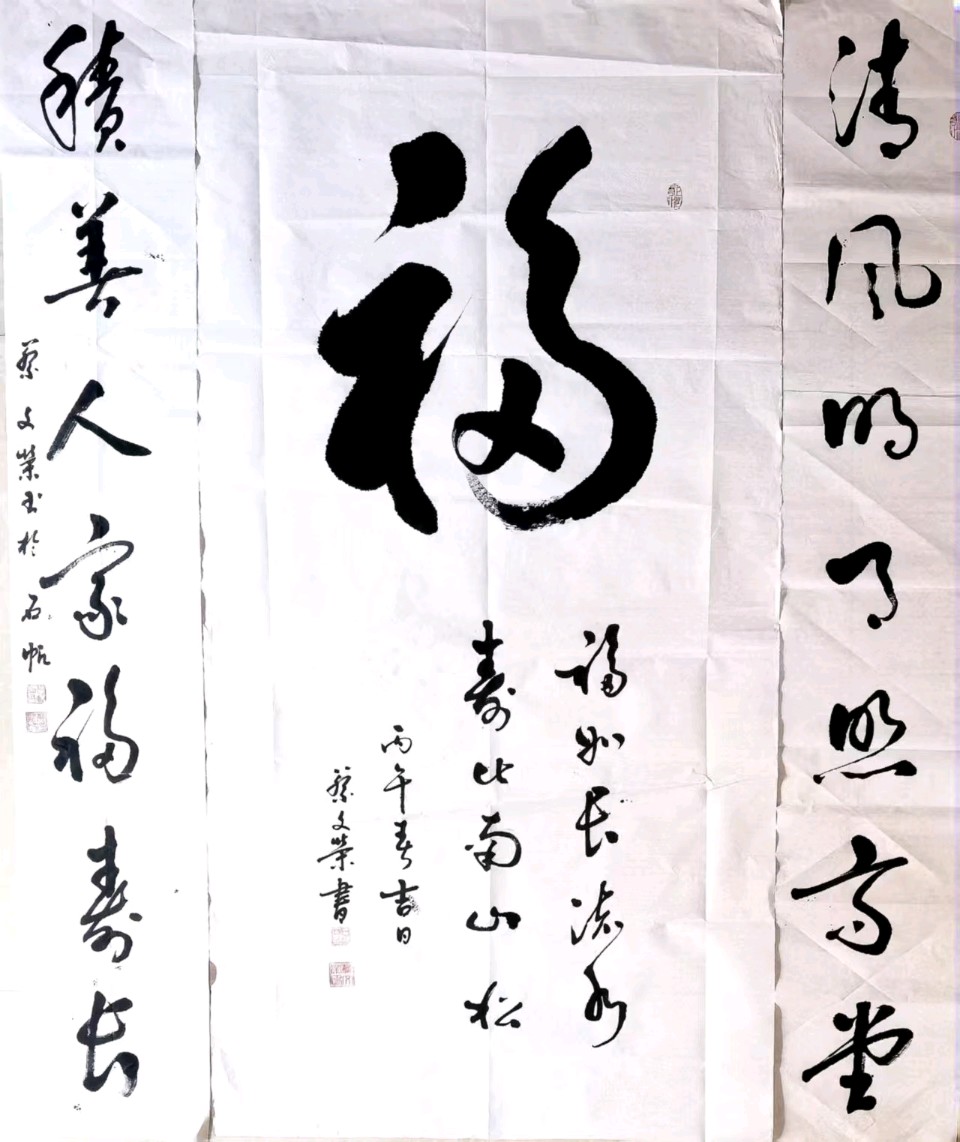 清风明月照高堂
福
福如长流水
寿比南山松
丙午春吉日
蔡文荣書
積善人家福寿长
蔡文荣书於石